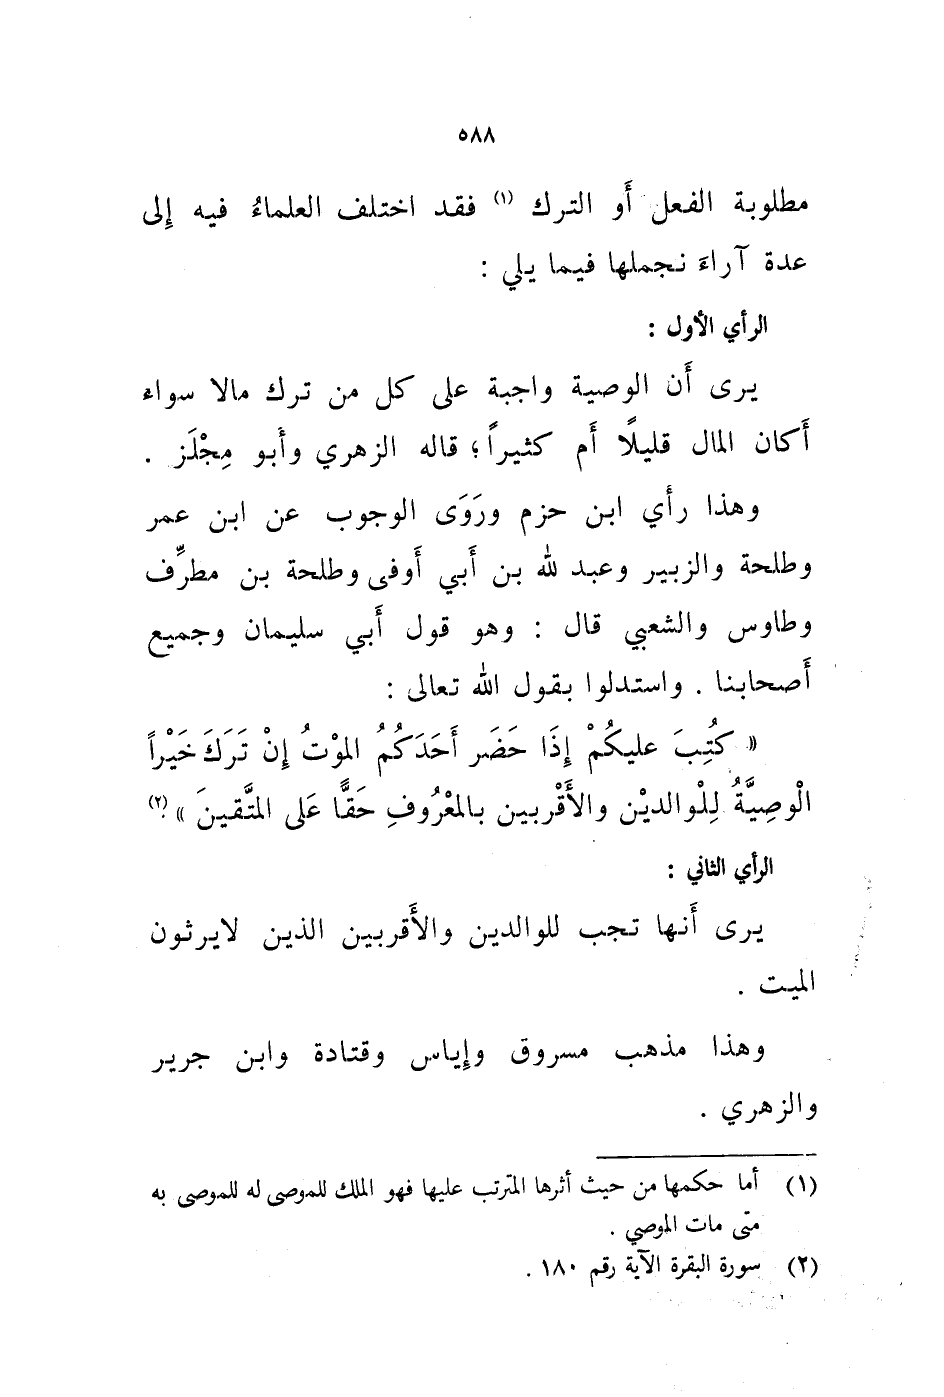 ٥٨٨
مطلوبة الفعل أَو الترك (١) فقد اختلف العلماءُ فيه إِلى
عدة آراءَ نجملها فيما يلي :
الرأي الأول :
يرى أَن الوصية واجبة على كل من ترك مالا سواء
أَكان المال قليلًا أَم كثيراً ؛ قاله الزهري وأَبو مِجْلَز .
وهذا رأي ابن حزم ورَوَى الوجوب عن ابن عمر
وطلحة والزبير وعبد لله بن أَبي أَوفى وطلحة بن مطرِّف
وطاوس والشعبي قال : وهو قول أَبي سليمان وجميع
أَصحابنا . واستدلوا بقول الله تعالى :
« كُتِبَ عليكُمْ إِذَا حَضَر أَحَدَكُمُ الموْتُ إِنْ تَرَكَ خَيْراً
الْوصِيَّةُ لِلْوالديْن والأَقْربين بالمعْرُوفِ حَقًّا عَلى المتَّقينَ » (٢).
الرأي الثاني :
يرى أَنها تجب للوالدين والأَقربين الذين لايرثون
الميت .
وهذا مذهب مسروق وإِياس وقتادة وابن جرير
والزهري .
(١) أما حكمها من حيث أثرها المترتب عليها فهو الملك للموصى له للموصى به
متى مات الموصي .
(٢) سورة البقرة الآية رقم ١٨٠ .